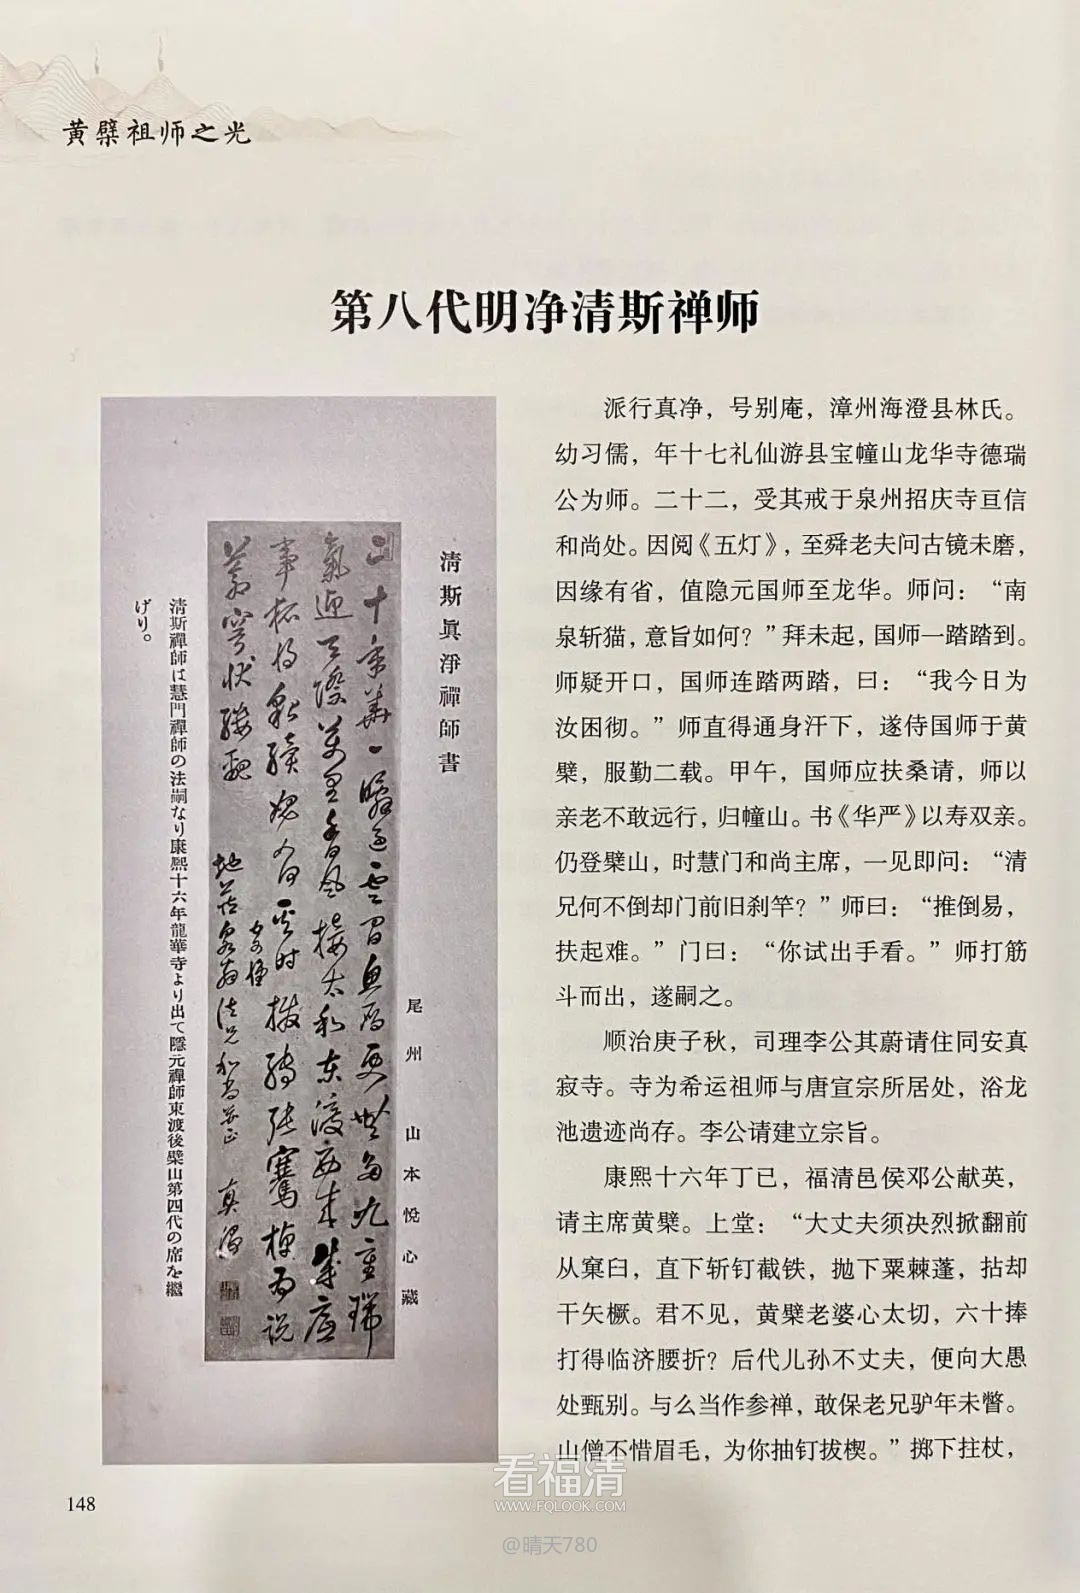 黄檗祖师之光
第八代明净清斯禅师
清斯眞淨禪師書
尾州 山本悅心藏
清斯禪師は慧門禪師の法嗣なり康熙十六年龍華寺より出て隱元禪師東渡後檗山第四代の席を繼
げり。
派行真净，号别庵，漳州海澄县林氏。
幼习儒，年十七礼仙游县宝幢山龙华寺德瑞
公为师。二十二，受其戒于泉州招庆寺亘信
和尚处。因阅《五灯》，至舜老夫问古镜未磨，
因缘有省，值隐元国师至龙华。师问：“南
泉斩猫，意旨如何？”拜未起，国师一踏踏到。
师疑开口，国师连踏两踏，曰：“我今日为
汝困彻。”师直得通身汗下，遂侍国师于黄
檗，服勤二载。甲午，国师应扶桑请，师以
亲老不敢远行，归幢山。书《华严》以寿双亲。
仍登檗山，时慧门和尚主席，一见即问：“清
兄何不倒却门前旧刹竿？”师曰：“推倒易，
扶起难。”门曰：“你试出手看。”师打筋
斗而出，遂嗣之。
顺治庚子秋，司理李公其蔚请住同安真
寂寺。寺为希运祖师与唐宣宗所居处，浴龙
池遗迹尚存。李公请建立宗旨。
康熙十六年丁巳，福清邑侯邓公献英，
请主席黄檗。上堂：“大丈夫须决烈掀翻前
从窠臼，直下斩钉截铁，抛下粟棘蓬，拈却
干矢橛。君不见，黄檗老婆心太切，六十捧
打得临济腰折？后代儿孙不丈夫，便向大愚
处甄别。与么当作参禅，敢保老兄驴年未瞥。
山僧不惜眉毛，为你抽钉拔楔。”掷下拄杖，
148
看福清
WWW.FQLOOK.COM
@晴天780